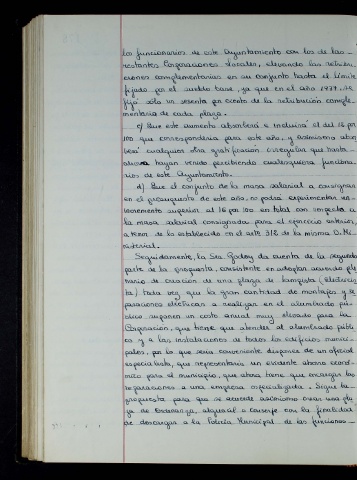 los funcionarios de este Ayuntamiento con los de las
restantes Corporaciones Locales, elevando las retribu-
ciones complementarias en su conjunto hasta el límite
fijado por el sueldo base, ya que en el año 1979 se
fijó sólo un sesenta por ciento de la retribución comple-
mentaria de cada plaza.
c) Que este aumento absorberá e incluirá el del 16 por
100 que correspondería para este año, y asimismo absor-
berá cualquier otra gratificación irregular que hasta
ahora hayan venido percibiendo cualesquiera funciona-
rios de este Ayuntamiento.
d) Que el conjunto de la masa salarial a consignar
en el presupuesto de este año, no podrá experimentar un
incremento superior al 16 por 100 en total con respecto a
la masa salarial consignada para el ejercicio anterior,
a tenor de lo establecido en el artº 3/2 de la misma O. Mi-
nisterial.
Seguidamente, la Sra. Godoy da cuenta de la segunda
parte de la propuesta, consistente en adoptar acuerdo ple-
nario de creación de una plaza de Lampista (Electricis-
ta) toda vez que la gran cantidad de montajes y re-
paraciones eléctricas a realizar en el alumbrado pú-
blico suponen un coste anual muy elevado para la
Corporación, que tiene que atender al alumbrado públi-
co y a las instalaciones de todos los edificios munici-
pales, por lo que sería conveniente disponer de un oficial
especialista, que representaría un evidente ahorro econó-
mico para el municipio, que ahora tiene que encargar las
reparaciones a una empresa especializada. Sigue la
propuesta para que se acuerde asimismo crear una pla-
za de Ordenanza, alguacil o Conserje con la finalidad
de descargar a la Policía Municipal de las funciones-